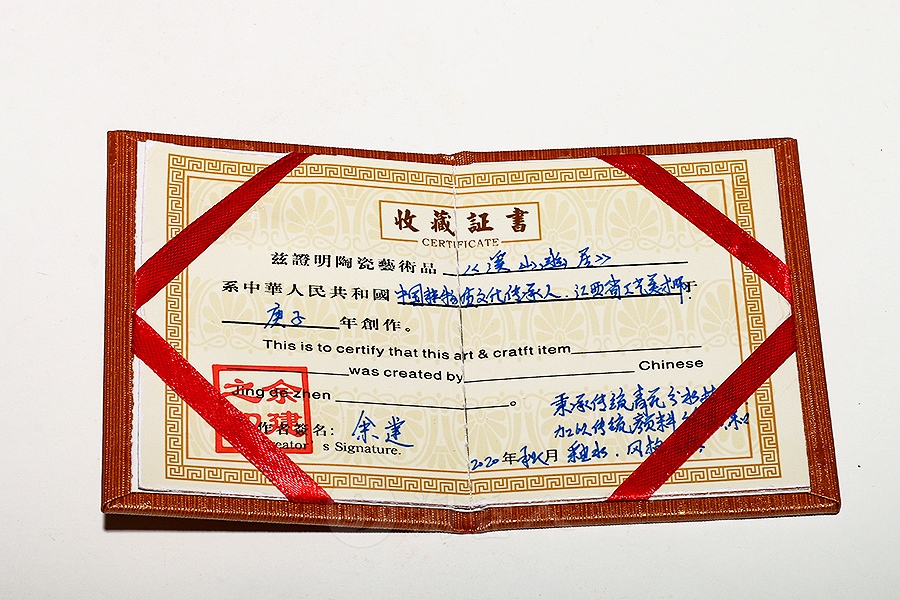 收藏証書
CERTIFICATE
兹證明陶瓷藝術品 《溪山幽居》
系中華人民共和國 中国非物质文化传承人.江西省工艺美术师 于
庚子 年創作。
This is to certify that this art & cratft item
was created by Chinese
Jing de zhen 。
秉承传统青花分水
加以传统颜料
作者签名: 余建
s Signature.
2020年秋月 釉水.风格
余建
印